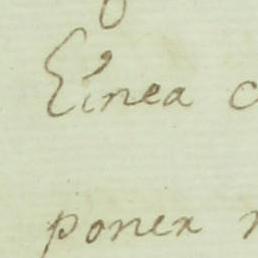 Linea
poner